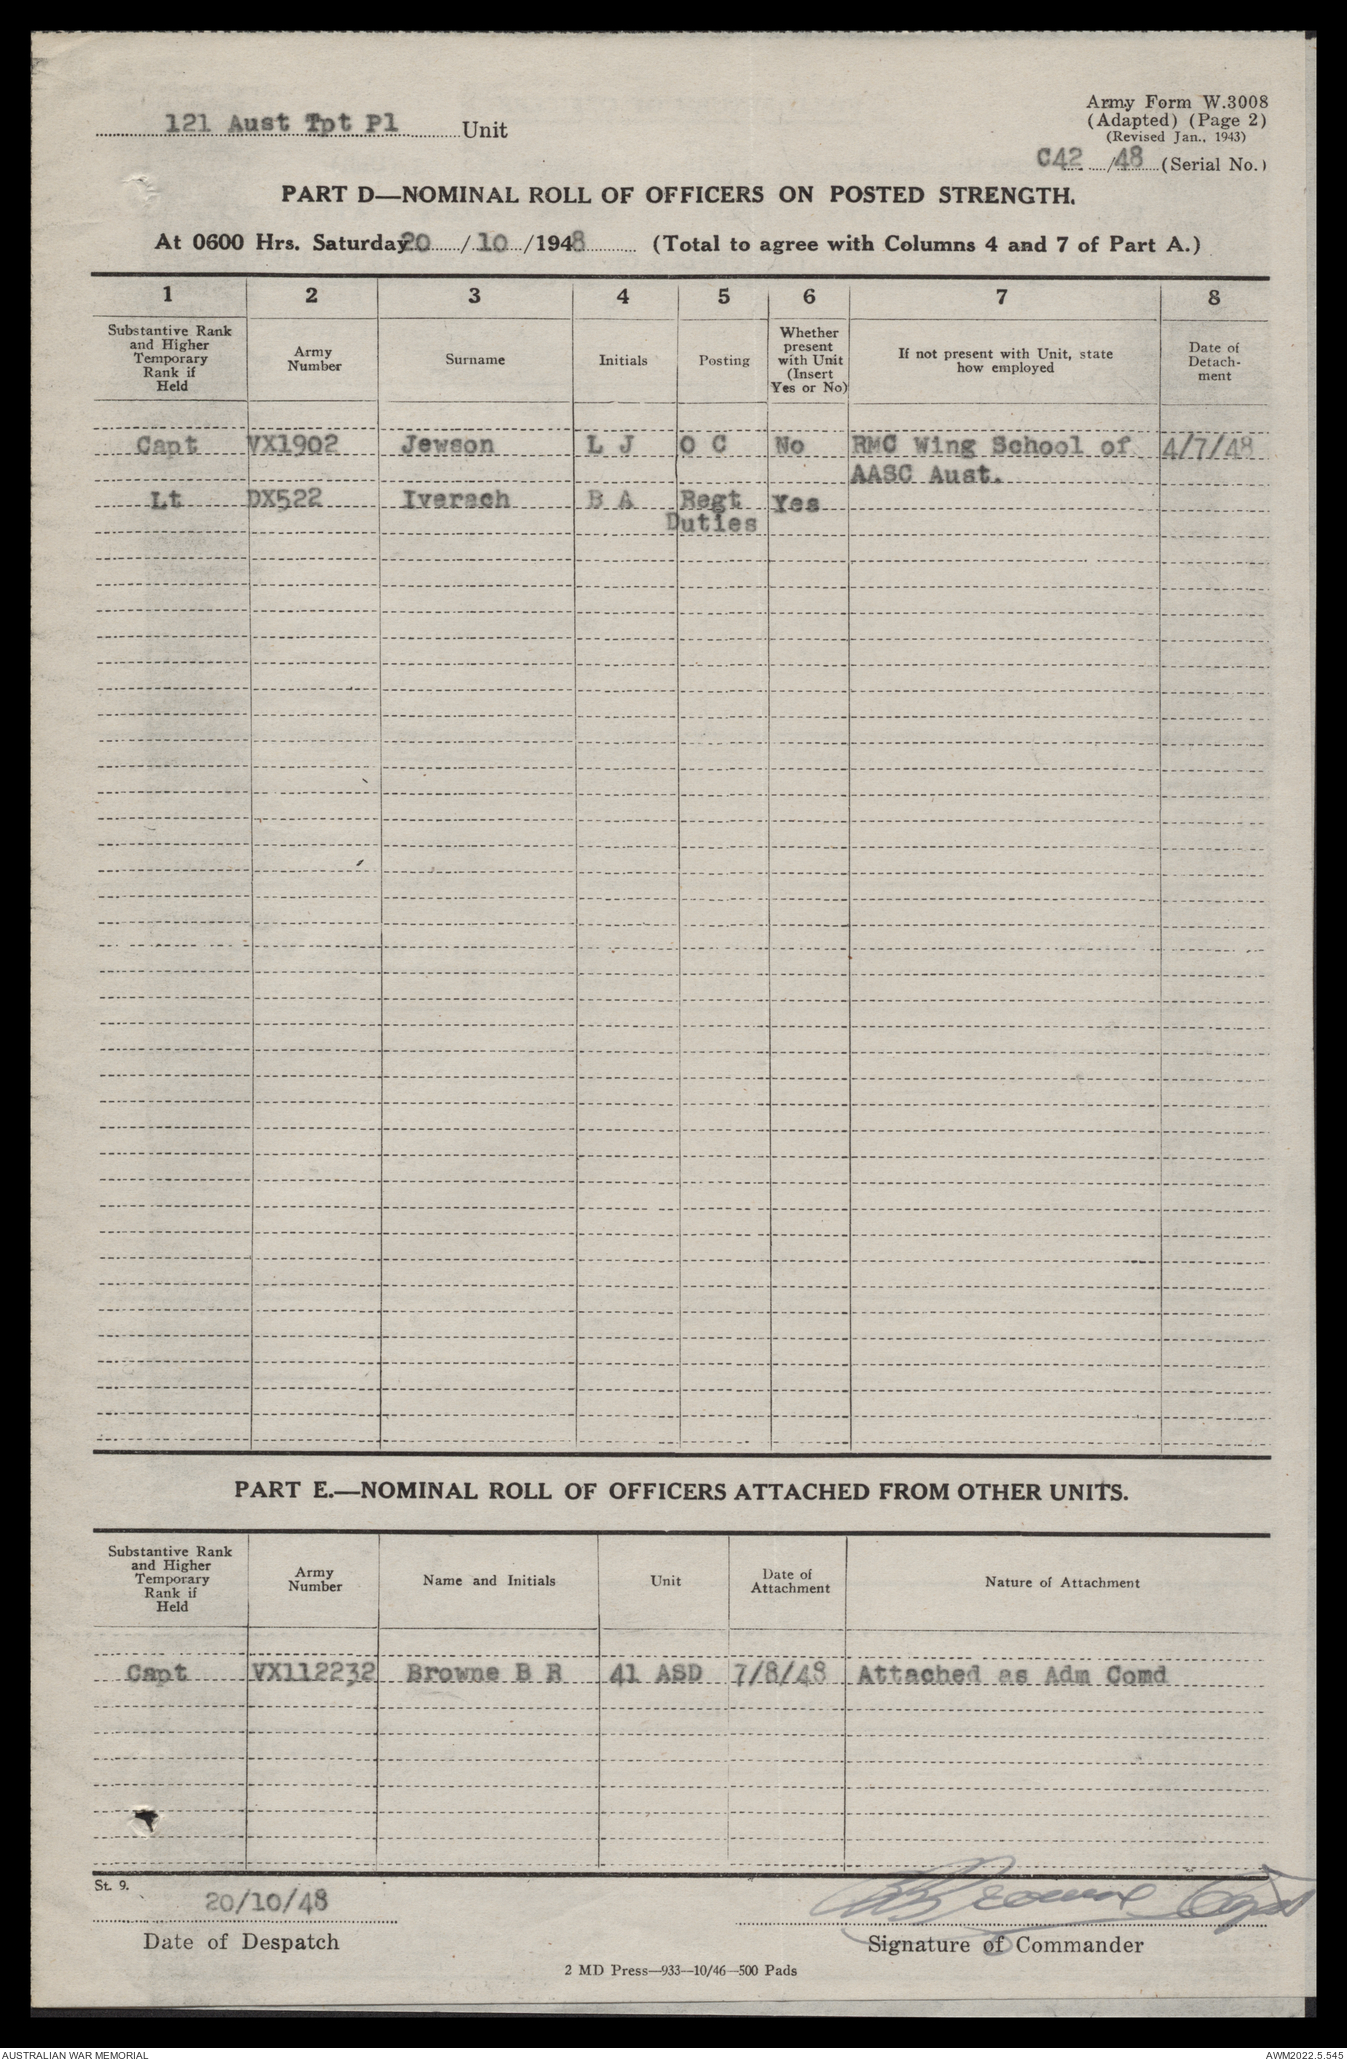 121 Aust Tpt Pl Unit
Army Form W.3008
(Adapted) (Page 2)
(Revised Jan., 1943)
C42 /48 (Serial No.)
PART D—NOMINAL ROLL OF OFFICERS ON POSTED STRENGTH.
At 0600 Hrs. Saturday 20 / 10 /1948 (Total to agree with Columns 4 and 7 of Part A.)
1 2 3 4 5 6 7 8
Substantive Rank
and Higher
Temporary
Rank if
Held
Army
Number
Surname
Initials
Posting
Whether
present
with Unit
(Insert
Yes or No)
If not present with Unit, state
how employed
Date of
Detach-
ment
Capt VX1902 Jewson L J O C No RMC Wing School of 4/7/48
AASC Aust.
Lt DX522 Iverach B A Regt Yes
Duties
PART E.—NOMINAL ROLL OF OFFICERS ATTACHED FROM OTHER UNITS.
Substantive Rank
and Higher
Temporary
Rank if
Held
Army
Number
Name and Initials
Unit
Date of
Attachment
Nature of Attachment
Capt VX112232 Browne B R 41 ASD 7/8/48 Attached as Adm Comd
St. 9.
20/10/48
BRBrowne Capt
Date of Despatch
Signature of Commander
2 MD Press—933—10/46—500 Pads
AUSTRALIAN WAR MEMORIAL
AWM2022.5.545